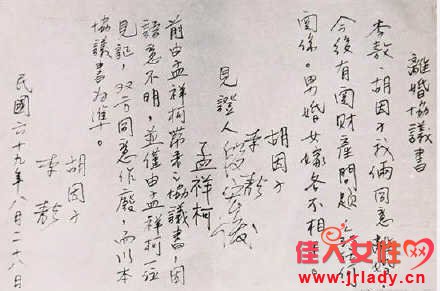 離婚協議書
李敖 胡因子我倆同意離婚,
今後有関財產問題
関係。男婚女嫁各不相干。
胡因子
李敖
見證人
孟祥柯
前由孟祥柯帶來之協議書,因
語意不明,並僅由孟祥柯一
見証,双方同意作廢,而以本
協議書為準。
胡因子
李敖
民國六十九年八月二十八日
佳人女性网
www.jrlady.com